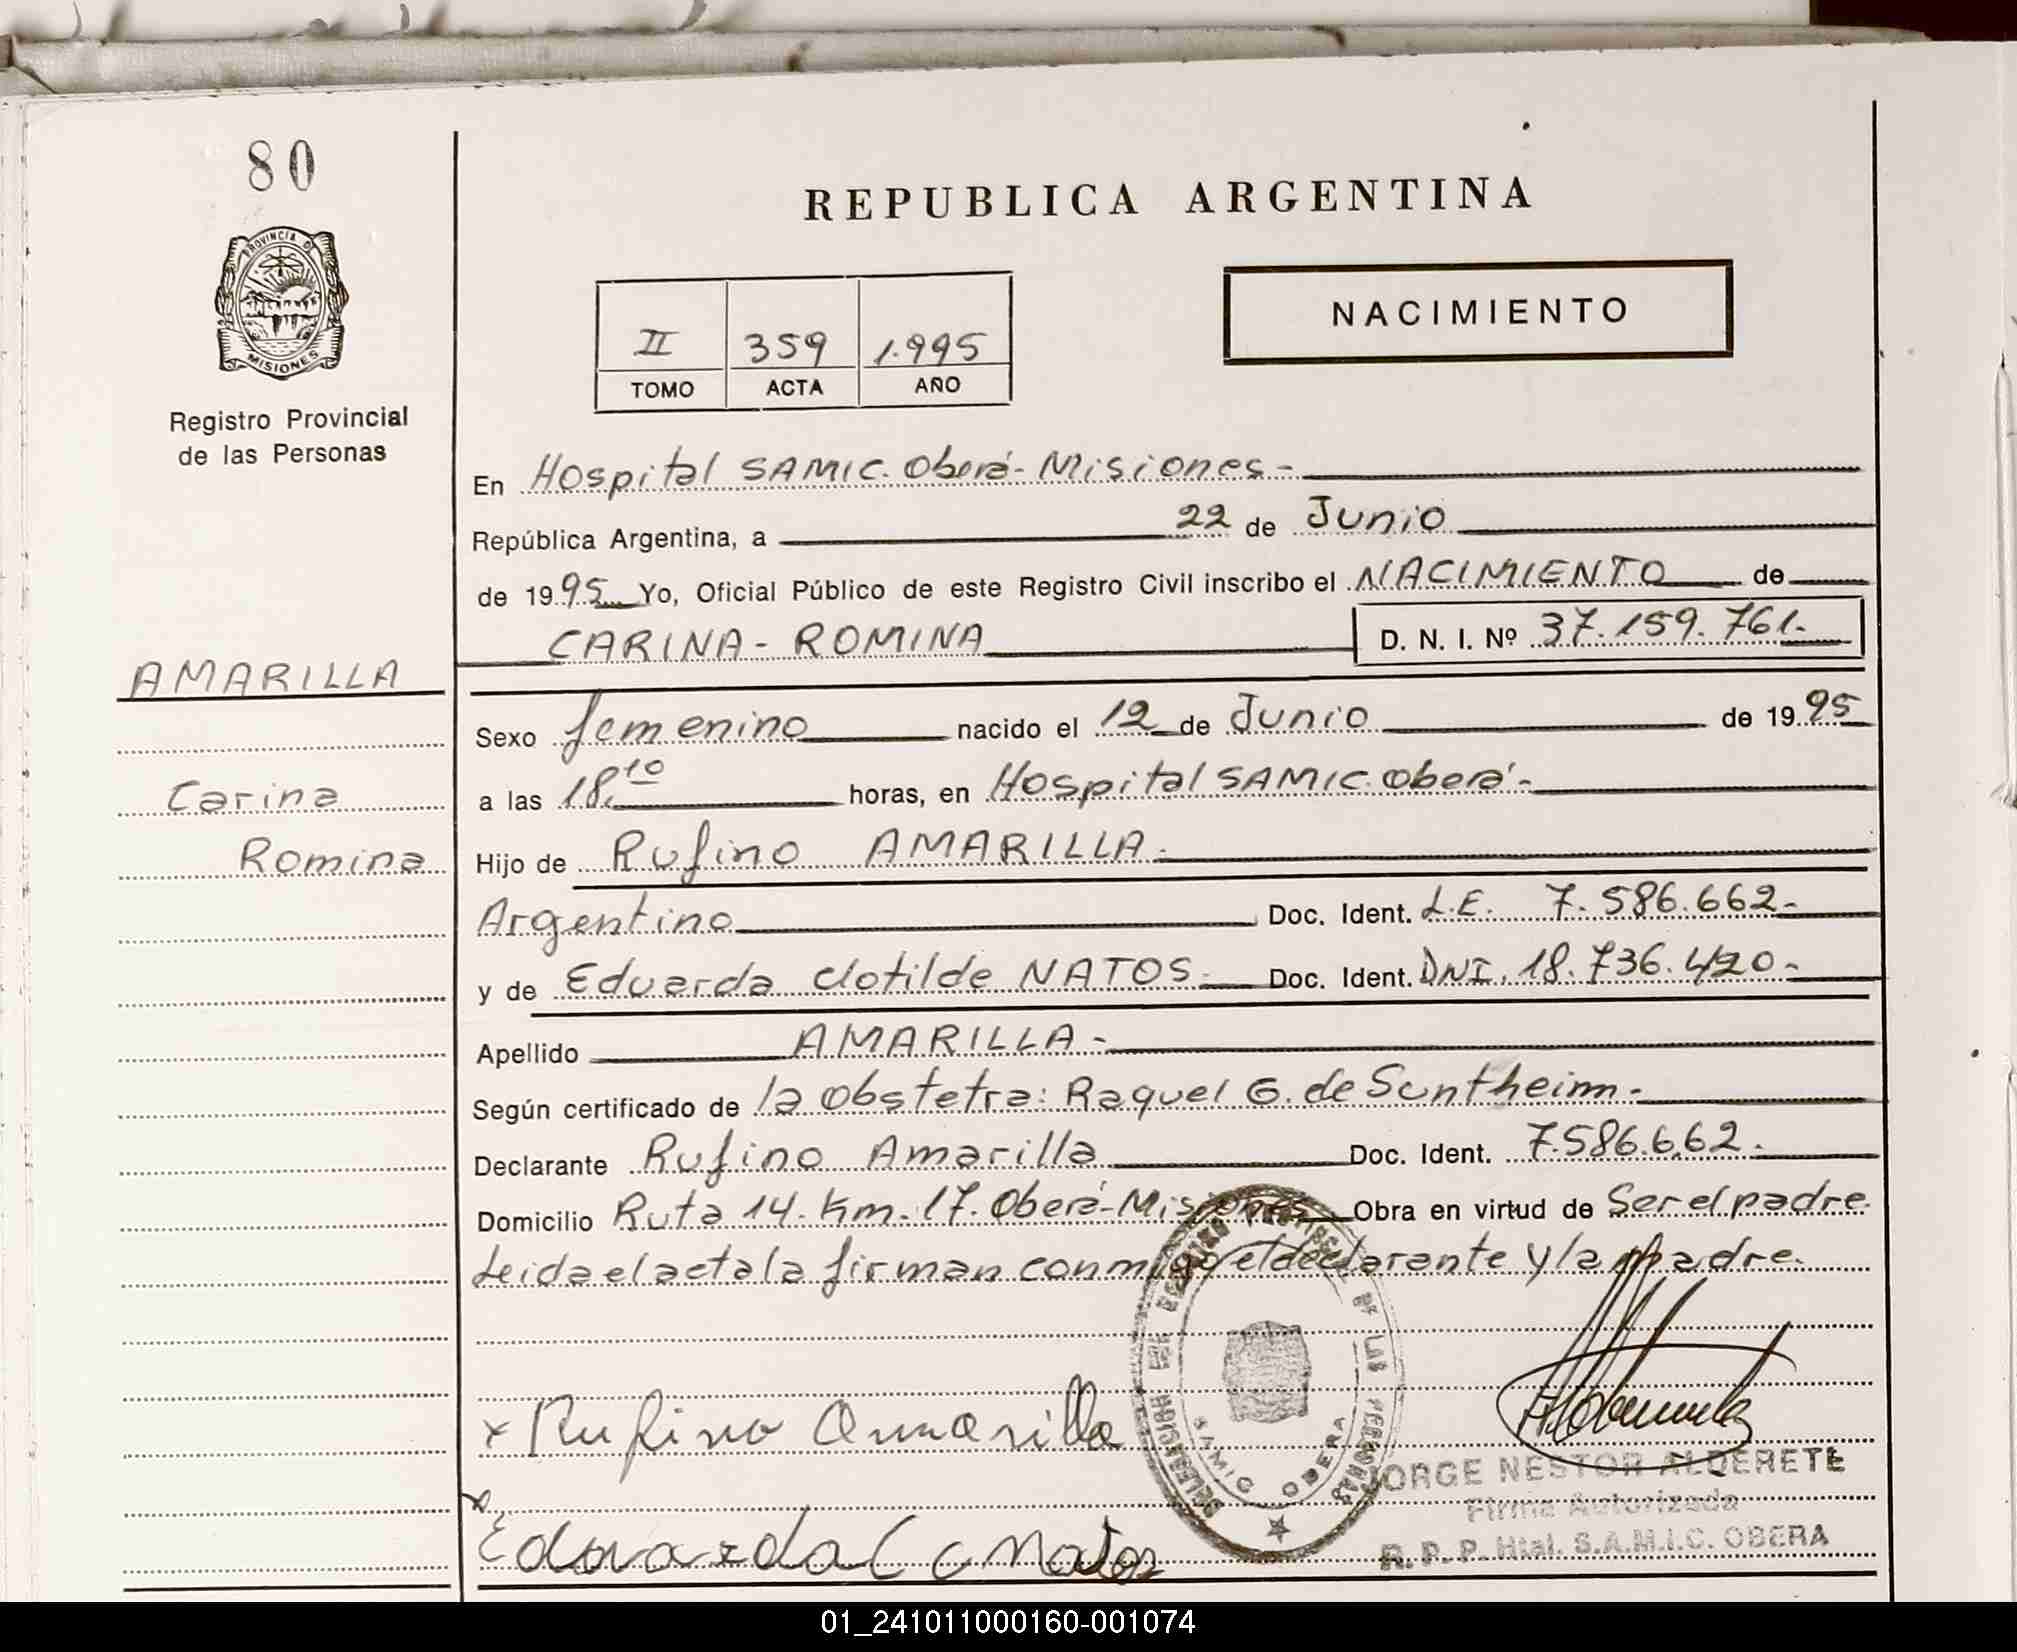 80
PROVINCIA DE
MISIONES
Registro Provincial
de las Personas
AMARILLA
Carina
Romina
REPUBLICA ARGENTINA
NACIMIENTO
II 359 1.995
TOMO ACTA AÑO
En Hospital SAMIC. Oberá - Misiones -
República Argentina, a 22 de Junio
de 1995 Yo, Oficial Público de este Registro Civil inscribo el NACIMIENTO de
CARINA - ROMINA D. N. I. Nº 37.159.761.-
Sexo femenino nacido el 12 de Junio de 1995
a las 18,10 horas, en Hospital SAMIC. Oberá -
Hijo de Rufino AMARILLA.-
Argentino Doc. Ident. L.E. 7.586.662.-
y de Eduarda Clotilde NATOS.- Doc. Ident. DNI. 18.736.420.-
Apellido AMARILLA.-
Según certificado de la Obstetra: Raquel G. de Suntheim.-
Declarante Rufino Amarilla Doc. Ident. 7.586.662.-
Domicilio Ruta 14. Km. 17. Oberá - Misiones Obra en virtud de Ser el padre
Leida el acta la firman conmigo el declarante y la madre.
DELEGACION DEL REGISTRO DE LAS PERSONAS
SAMIC OBERA
x Rufino Amarilla
JORGE NESTOR ALDERETE
Firma Autorizada
R. P. P. Htal. S.A.M.I.C. OBERA
x Eduarda C Natos
01_241011000160-001074